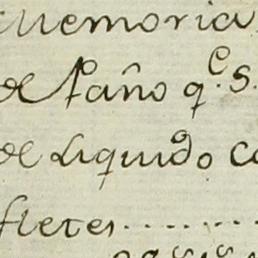 Memoria
de Paño q.e S.
de Liquido Co
fletes........